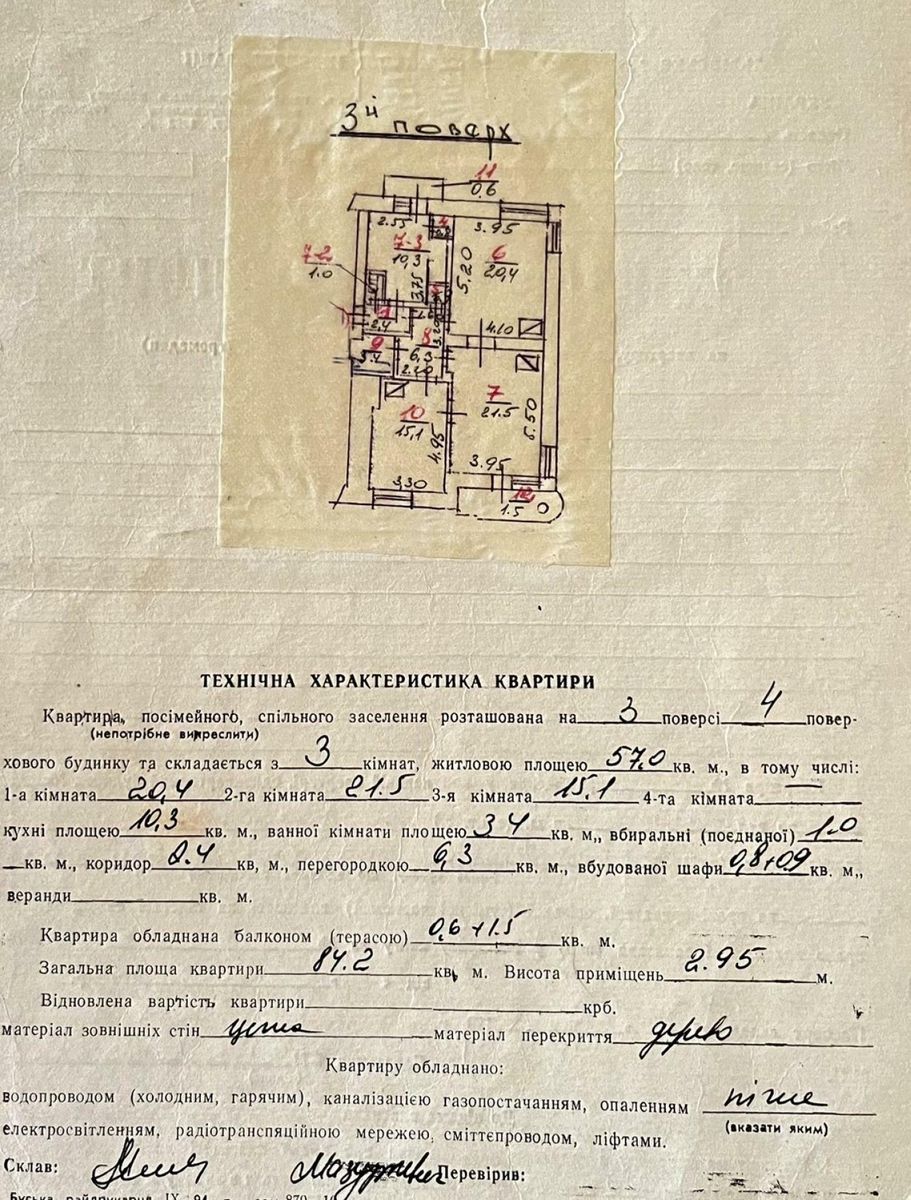 3й поверх
11
0.6
2.55
4
3.95
7-3
10,3
6
20,4
7-2
1.0
3.75
5.20
5
1
2.4
8
6.3
2.10
4.10
9
10
15,1
4.95
7
21.5
3.95
3,30
12
1.5
ТЕХНІЧНА ХАРАКТЕРИСТИКА КВАРТИРИ
Квартира, посімейного, спільного заселення розташована на 3 поверсі 4 повер-
(непотрібне викреслити)
хового будинку та складається з 3 кімнат, житловою площею 57.0 кв. м., в тому числі:
1-а кімната 20,4 2-га кімната 21.5 3-я кімната 15.1 4-та кімната
кухні площею 10,3 кв. м., ванної кімнати площею 3 4 кв. м,, вбиральні (поєднаної) 1.0
кв. м., коридор 2.4 кв, м., перегородкою 6,3 кв. м., вбудованої шафи 0,8+0.9 кв. м,,
веранди кв. м.
Квартира обладнана балконом (терасою) 0,6 +1.5 кв. м.
Загальна площа квартири 84.2 кв, м. Висота приміщень 2.95 м.
Відновлена вартість квартири крб.
матеріал зовнішніх стін цегла матеріал перекриття дерево
Квартиру обладнано:
водопроводом (холодним, гарячим), каналізацією газопостачанням, опаленням пічне
(вказати яким)
електросвітленням, радіотранспяційною мережею, сміттєпроводом, ліфтами.
Склав: Перевірив: